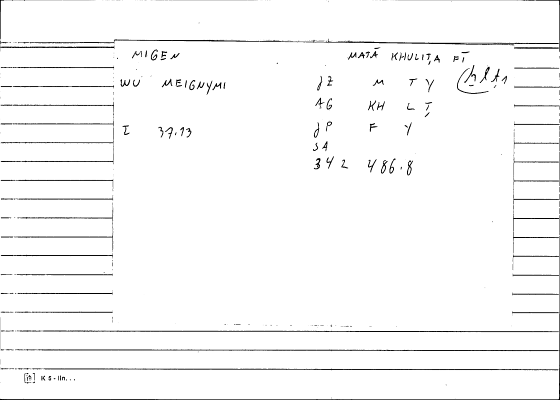 MIGEN MATĀ KHULIṬA FĪ
WU MEIGNYMI JZ M T Y ḫlṭ1
AG KH L Ṭ
I 37.13 JP F Y
SA
342 486.8
K5-lin...